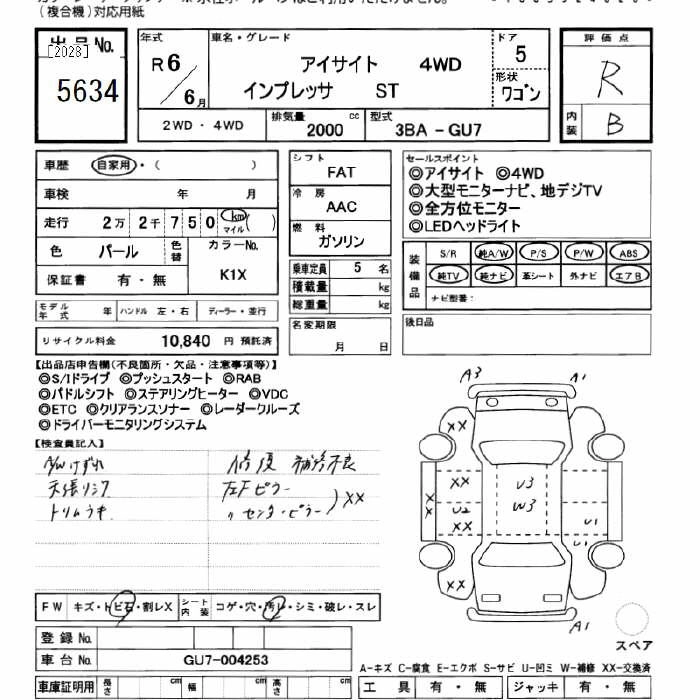 (複合機)対応用紙
出品No.
[2028]
5634
年式
R6/6月
車名・グレード
アイサイト 4WD
インプレッサ ST
ドア
5
形状
ワゴン
評価点
R
内装
B
2WD・4WD
排気量
2000 cc
型式
3BA-GU7
車歴 自家用・( )
車検 年 月
走行 2万 2千 750 km マイル ( )
色 パール 色替
カラーNo.
K1X
保証書 有・無
モデル年式 年 ハンドル 左・右 ディーラー・並行
リサイクル料金 10,840 円 預託済
シフト
FAT
冷房
AAC
燃料
ガソリン
乗車定員 5 名
積載量 kg
総重量 kg
名変期限
月 日
セールスポイント
◎アイサイト ◎4WD
◎大型モニターナビ、地デジTV
◎全方位モニター
◎LEDヘッドライト
装備品
S/R 純A/W P/S P/W ABS
純TV 純ナビ 革シート 外ナビ エアB
ナビ型番:
後日品
【出品店申告欄(不良箇所・欠品・注意事項等)】
◎S/Iドライブ ◎プッシュスタート ◎RAB
◎パドルシフト ◎ステアリングヒーター ◎VDC
◎ETC ◎クリアランスソナー ◎レーダークルーズ
◎ドライバーモニタリングシステム
【検査員記入】
A/Wけずれ
天張リシワ
トリムウキ
修復 補修不良
左Fピラー
〃 センターピラー
××
A3
A1
××
××
U3
W3
××
U2
××
U1
U1
××
A1
スペア
FW キズ・トビ石・割レX
シート内装 コゲ・穴・汚レ・シミ・破レ・スレ
登録No.
車台No. GU7-004253
車庫証明用 長さ cm 幅 cm 高さ cm
A-キズ C-腐食 E-エクボ S-サビ U-凹ミ W-補修 XX-交換済
工具 有・無 ジャッキ 有・無